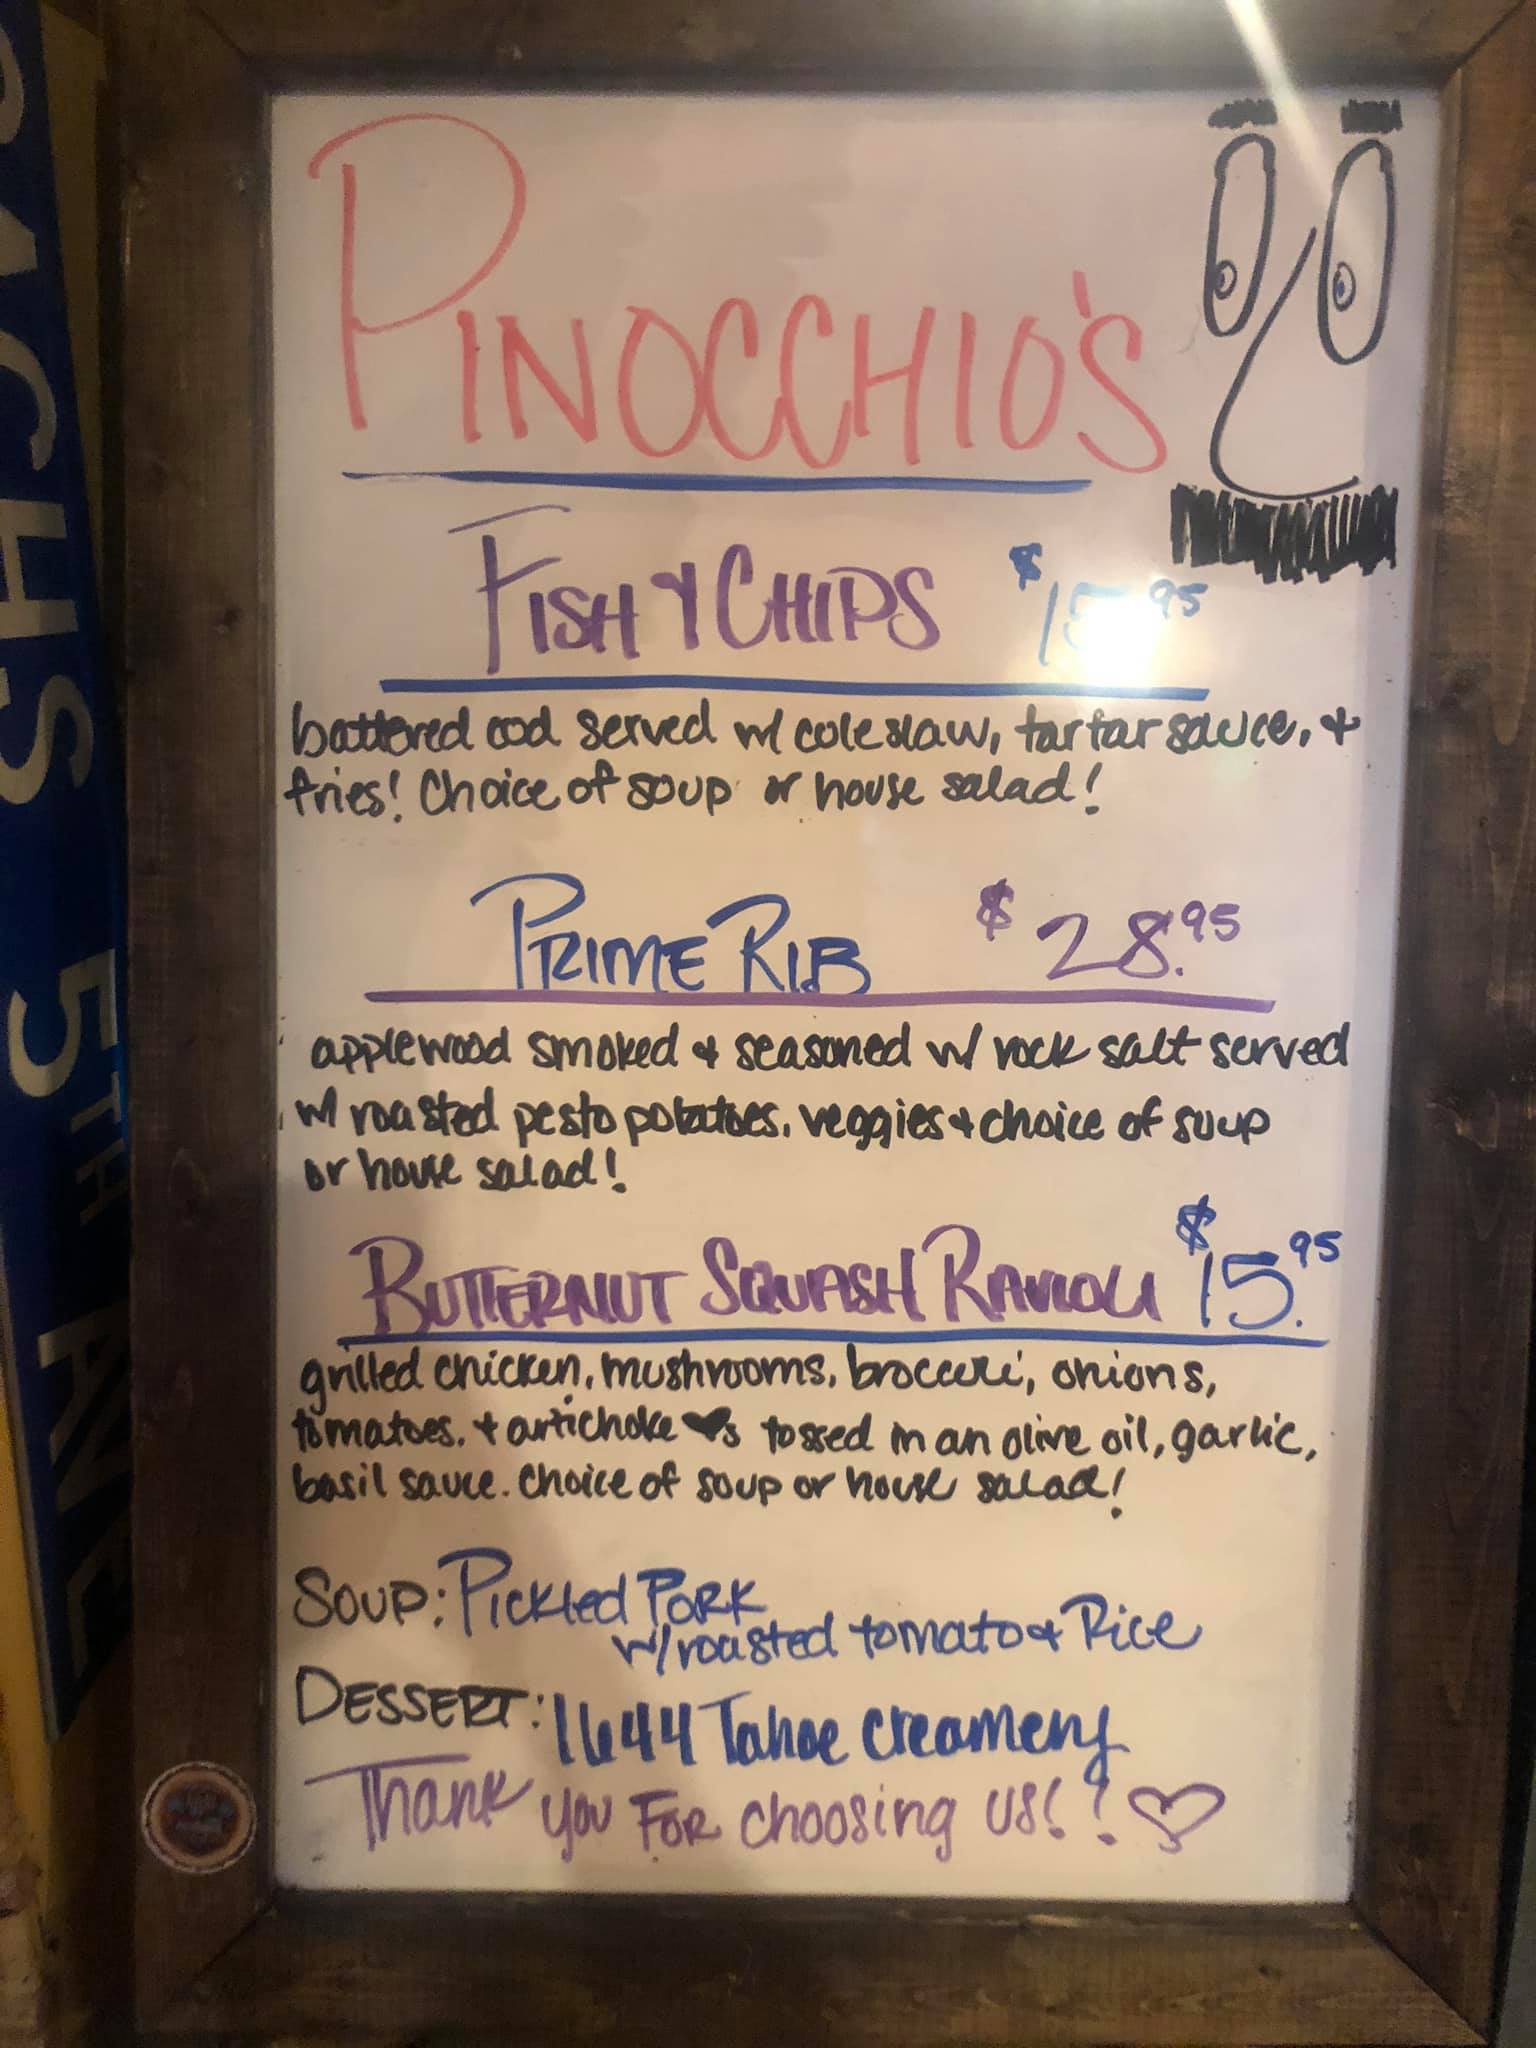 PINOCCHIO'S
FISH & CHIPS $15.95
battered cod served w/ coleslaw, tartar sauce, &
fries! Choice of soup or house salad!
PRIME RIB $28.95
applewood smoked & seasoned w/ rock salt served
w/ roasted pesto potatoes, veggies & choice of soup
or house salad!
BUTTERNUT SQUASH RAVIOLI $15.95
grilled chicken, mushrooms, broccoli, onions,
tomatoes, & artichoke ♥s tossed in an olive oil, garlic,
basil sauce. Choice of soup or house salad!
SOUP: PICKLED PORK
w/ roasted tomato & Rice
DESSERT: 1644 Tahoe Creamery
Thank you For choosing us!! ♡
5TH